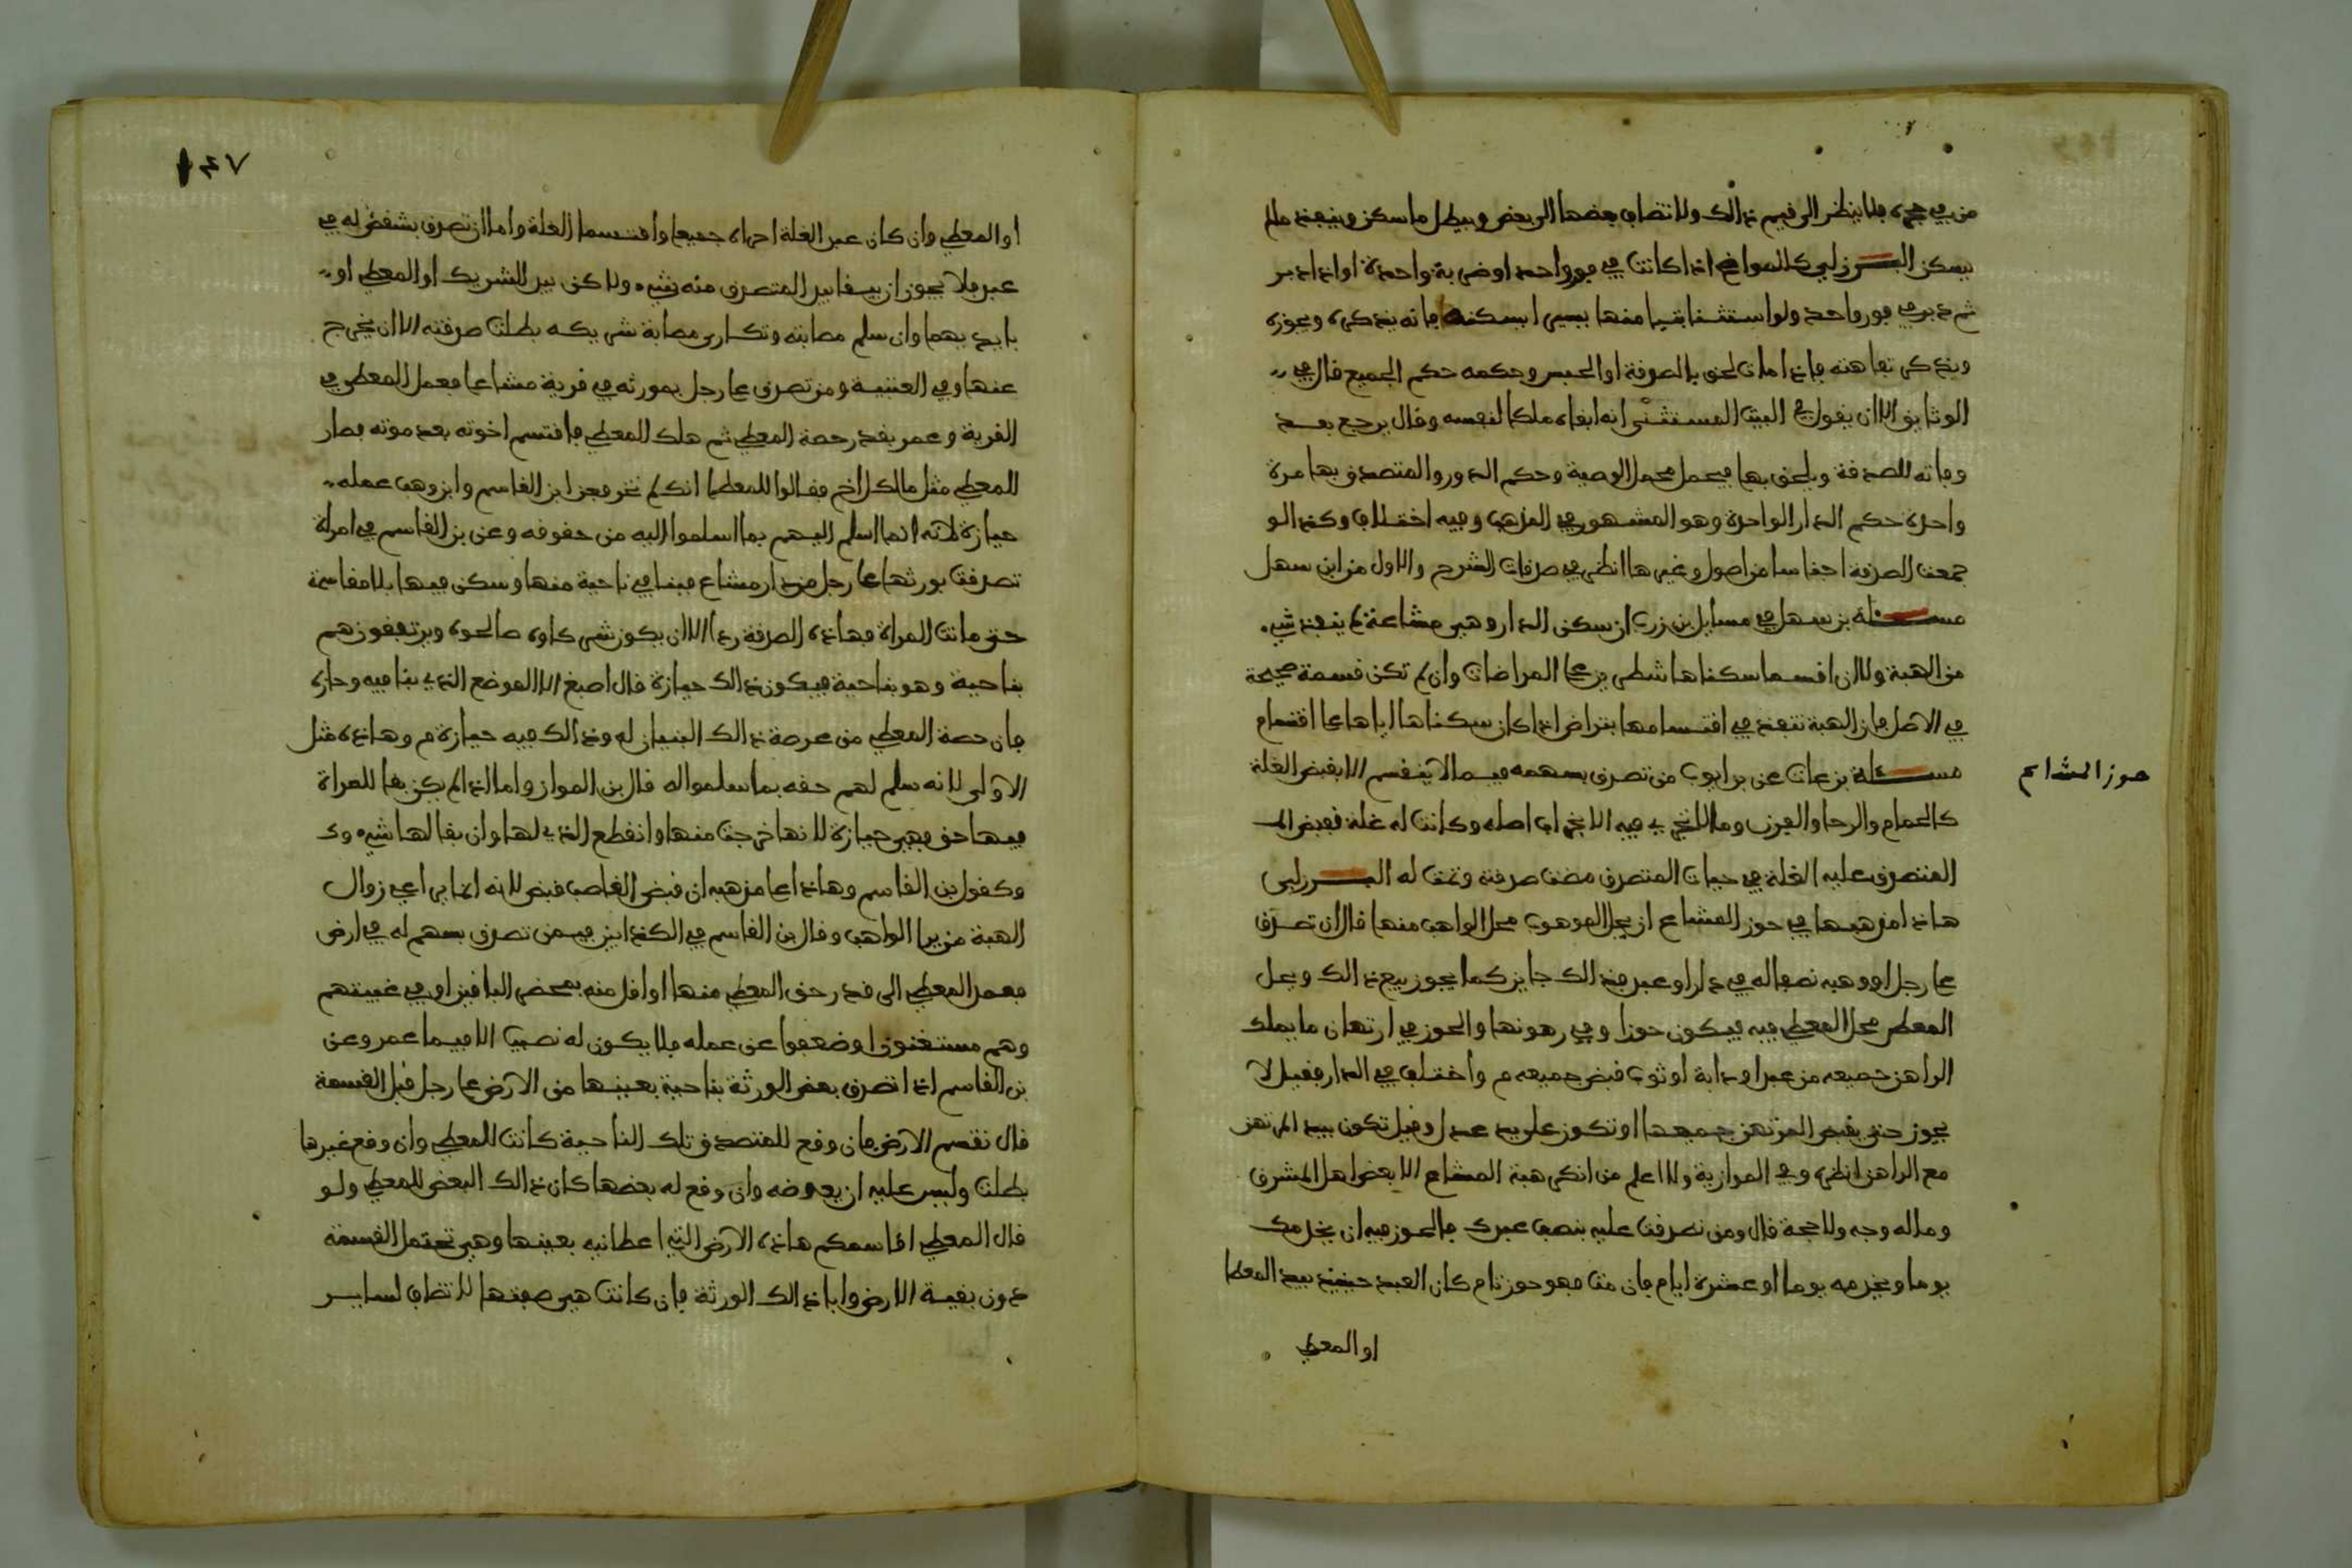 من في حجره فلا ينظر الى قيم ذالك ولا تضاف بعضها الى بعض ويبطل ما سكن وينفذ مالم
يسكن البرزلي كالمواضع اذا كانت في فور واحد او ضربة واحدة او اذا دبر
ثم دبر في فور واحد ولو استثنا فيها منها بيتا يسكنه فانه يذكره ويحوزه
ويذكر تفاهته فاذا مات لحق بالصدقة او الحبس وحكمه حكم الجميع قال في
الوثايق الا ان يقول في البيت المستثنى انه ابقاه ملكا لنفسه وقال يرجع بعد
وفاته للصدقة ويلحق بها فيحمل محمل الوصية وحكم الدور والمتصدق بها مرة
واحدة حكم الدار الواحدة وهو المشهور في المذهب وفيه اختلاف وكذا لو
جمعت الصدقة اجناسا من اصول وغيرها انظر في صدقات الشرح والاول من ابن سهل
مسئلة بن سهل في مسايل بن زرب ان سكن الدار وهي مشاعة لم ينفذ شيء
من الهبة ولا ان اقسما سكناها شطرين على المراضات وان لم تكن قسمة صحيحة
في الاصل فان الهبة تنفذ في اقتسامها بتراض اذا كان سكناها اياها على اقتسام
مسئلة بن عات عن بن ايوب من تصدق بسهمه فيما لا ينقسم الا بقبض الغلة
حوز المشاع
كالحمام والرحا والفرن وما لا تجري فيه الا بخراب اصله وكانت له غلة فقبض المـ
المتصدق عليه الغلة في حيات المتصدق مضت صدقته وتمت له البرزلي
هاذا مذهبها في حوز المشاع ان يحل الموهوب محل الواهب منها قال ان تصدق
على رجل او وهبه نصفا له في دار او عبد فذالك جايز كما يجوز بيع ذالك ويحل
المعطى محل المعطي فيه فيكون حوزا وفي رهونها والحوز في ارتهان ما يملك
الراهن جميعه من عبد او دابة او ثوب قبض جميعه م واختلف في الدار فقيل لا
يجوز حتى يقبض المرتهن جميعها او تكون على يد عدل وقيل تكون بيد المرتهن
مع الراهن انظره وفي الموازية ولا اعلم من انكر هبة المشاع الا بعض اهل المشرق
وماله وجه ولا حجة قال ومن تصدقت عليه بنصف عبدك فالحوز فيه ان يخدمك
يوما ويخدمه يوما او عشرة ايام فان مت فهو حوز تام كان العبد حينئذ بيد المعطا
او المعطي
١٤٧
او المعطي وان كان عبد الغلة اجراه جميعا واقتسما الغلة واما ان تصدق بشقص له في
عبد فلا يجوز ان يبقا بيد المتصدق منه شيء ولاكن بيد الشريك او المعطى او
بايديهما وان سلم مصابته وتكارى مصابة شريكه بطلت صدقته الا ان يخرج
عنها وفي العتبية ومن تصدق على رجل بمورثه في قرية مشاعا فعمل المعطى في
القرية وعمر بقدر حصة المعطي ثم هلك المعطي فاقتسم اخوته بعد موته فصار
للمعطي مثل ما لكل اخ فقالوا للمعطا انك لم تحز فجز ابن القاسم وابن وهب عمله
حيازة لانه انما اسلم اليهم بما اسلموا اليه من حقوقه وعن بن القاسم في امراة
تصدقت بمورثها على رجل من دار مشاع فبنا في ناحية منها وسكن فيها بلا مقاسمة
حتى ماتت المراة فهاذه الصدقة رد الا ان يكون شركاوه صالحوه ويرتفقون هم
بناحية وهو بناحية فيكون ذالك حيازة قال اصبغ الا الموضع الذي بنا فيه وحازه
فان حصة المعطي من عرصة ذالك البنيان له وذالك فيه حيازة م وهاذه مثل
الاولى لانه سلم لهم حقه بما سلموا له قال بن المواز واما اذا لم يكن بقا للمراة
فيها حق فهي حيازة لانها خرجت منها وانقطع الذي لها وان بقا لها شيء وكـ
وكقول بن القاسم وهاذا على مذهبه ان قبض الغاصب قبض لانه انما يراعي زوال
الهبة من يد الواهب وقال بن القاسم في الكتابين فيمن تصدق بسهم له في ارض
فعمد المعطى الى قدر حق المعطي منها او اقل منه بمحضر الباقين او في غيبتهم
وهم مستغنون او ضعفوا عن عمله فلا يكون له نصيب الا فيما عمر وعن
بن القاسم اذا تصدق بعض الورثة بناحية بعينها من الارض على رجل قبل القسمة
قال تقسم الارض فان وقع للمتصدق تلك الناحية كانت للمعطى وان وقع غيرها
بطلت وليس عليه ان يعوضه وان وقع له بعضها كان ذالك البعض للمعطى ولو
قال المعطي اقاسمكم هاذه الارض التي اعطانيه بعينها وهي تحتمل القسمة
دون بقية الارض وابا ذالك الورثة فان كانت هي صفتها لا تضاف لساير